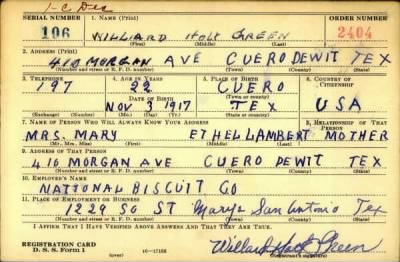 1-C Dec
SERIAL NUMBER 1. NAME (Print) ORDER NUMBER
106 WILLIARD HOLT GREEN 2404
(First) (Middle) (Last)
2. ADDRESS (Print)
410 MORGAN AVE CUERO DEWIT TEX
(Number and street or R. F. D. number) (Town) (County) (State)
3. TELEPHONE 4. AGE IN YEARS 5. PLACE OF BIRTH 6. COUNTRY OF CITIZENSHIP
197 22 CUERO
DATE OF BIRTH (Town or county)
NOV 3 1917 TEX USA
(Exchange) (Number) (Mo.) (Day) (Yr.) (State or country)
7. NAME OF PERSON WHO WILL ALWAYS KNOW YOUR ADDRESS 8. RELATIONSHIP OF THAT PERSON
MRS. MARY ETHEL LAMBERT MOTHER
(Mr., Mrs., Miss) (First) (Middle) (Last)
9. ADDRESS OF THAT PERSON
410 MORGAN AVE CUERO DEWIT TEX
(Number and street or R. F. D. number) (Town) (County) (State)
10. EMPLOYER'S NAME
NATIONAL BISCUIT CO
11. PLACE OF EMPLOYMENT OR BUSINESS
1229 SO ST Marys San Antonio Tex
(Number and street or R. F. D. number) (Town) (County) (State)
I AFFIRM THAT I HAVE VERIFIED ABOVE ANSWERS AND THAT THEY ARE TRUE.
REGISTRATION CARD
D. S. S. Form 1 (over) Willard Holt Green
(Registrant's signature)